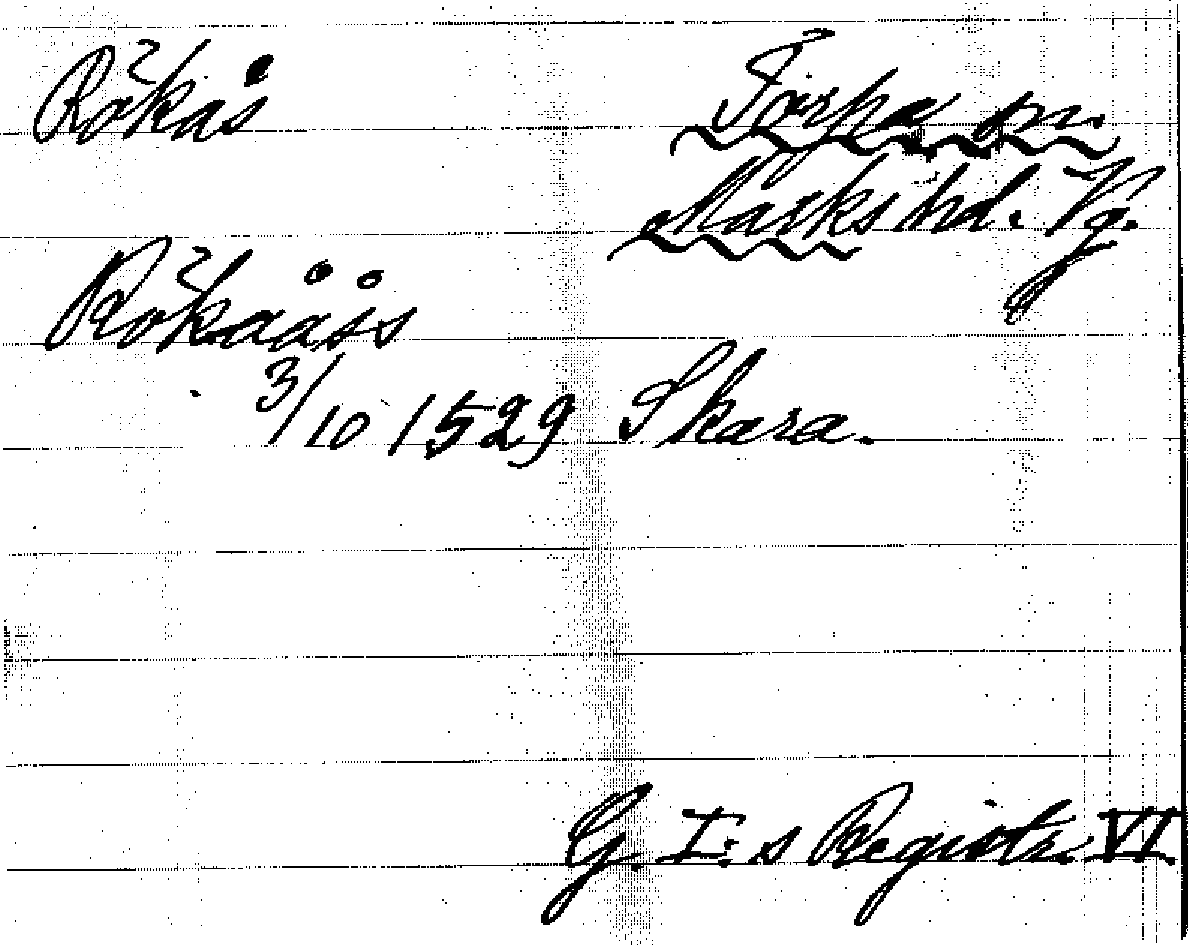 Rökås Torpa sn.
Marks hd. Vg.
Rökååss
3/10 1529 Skara.
G. I:s Registr. VI